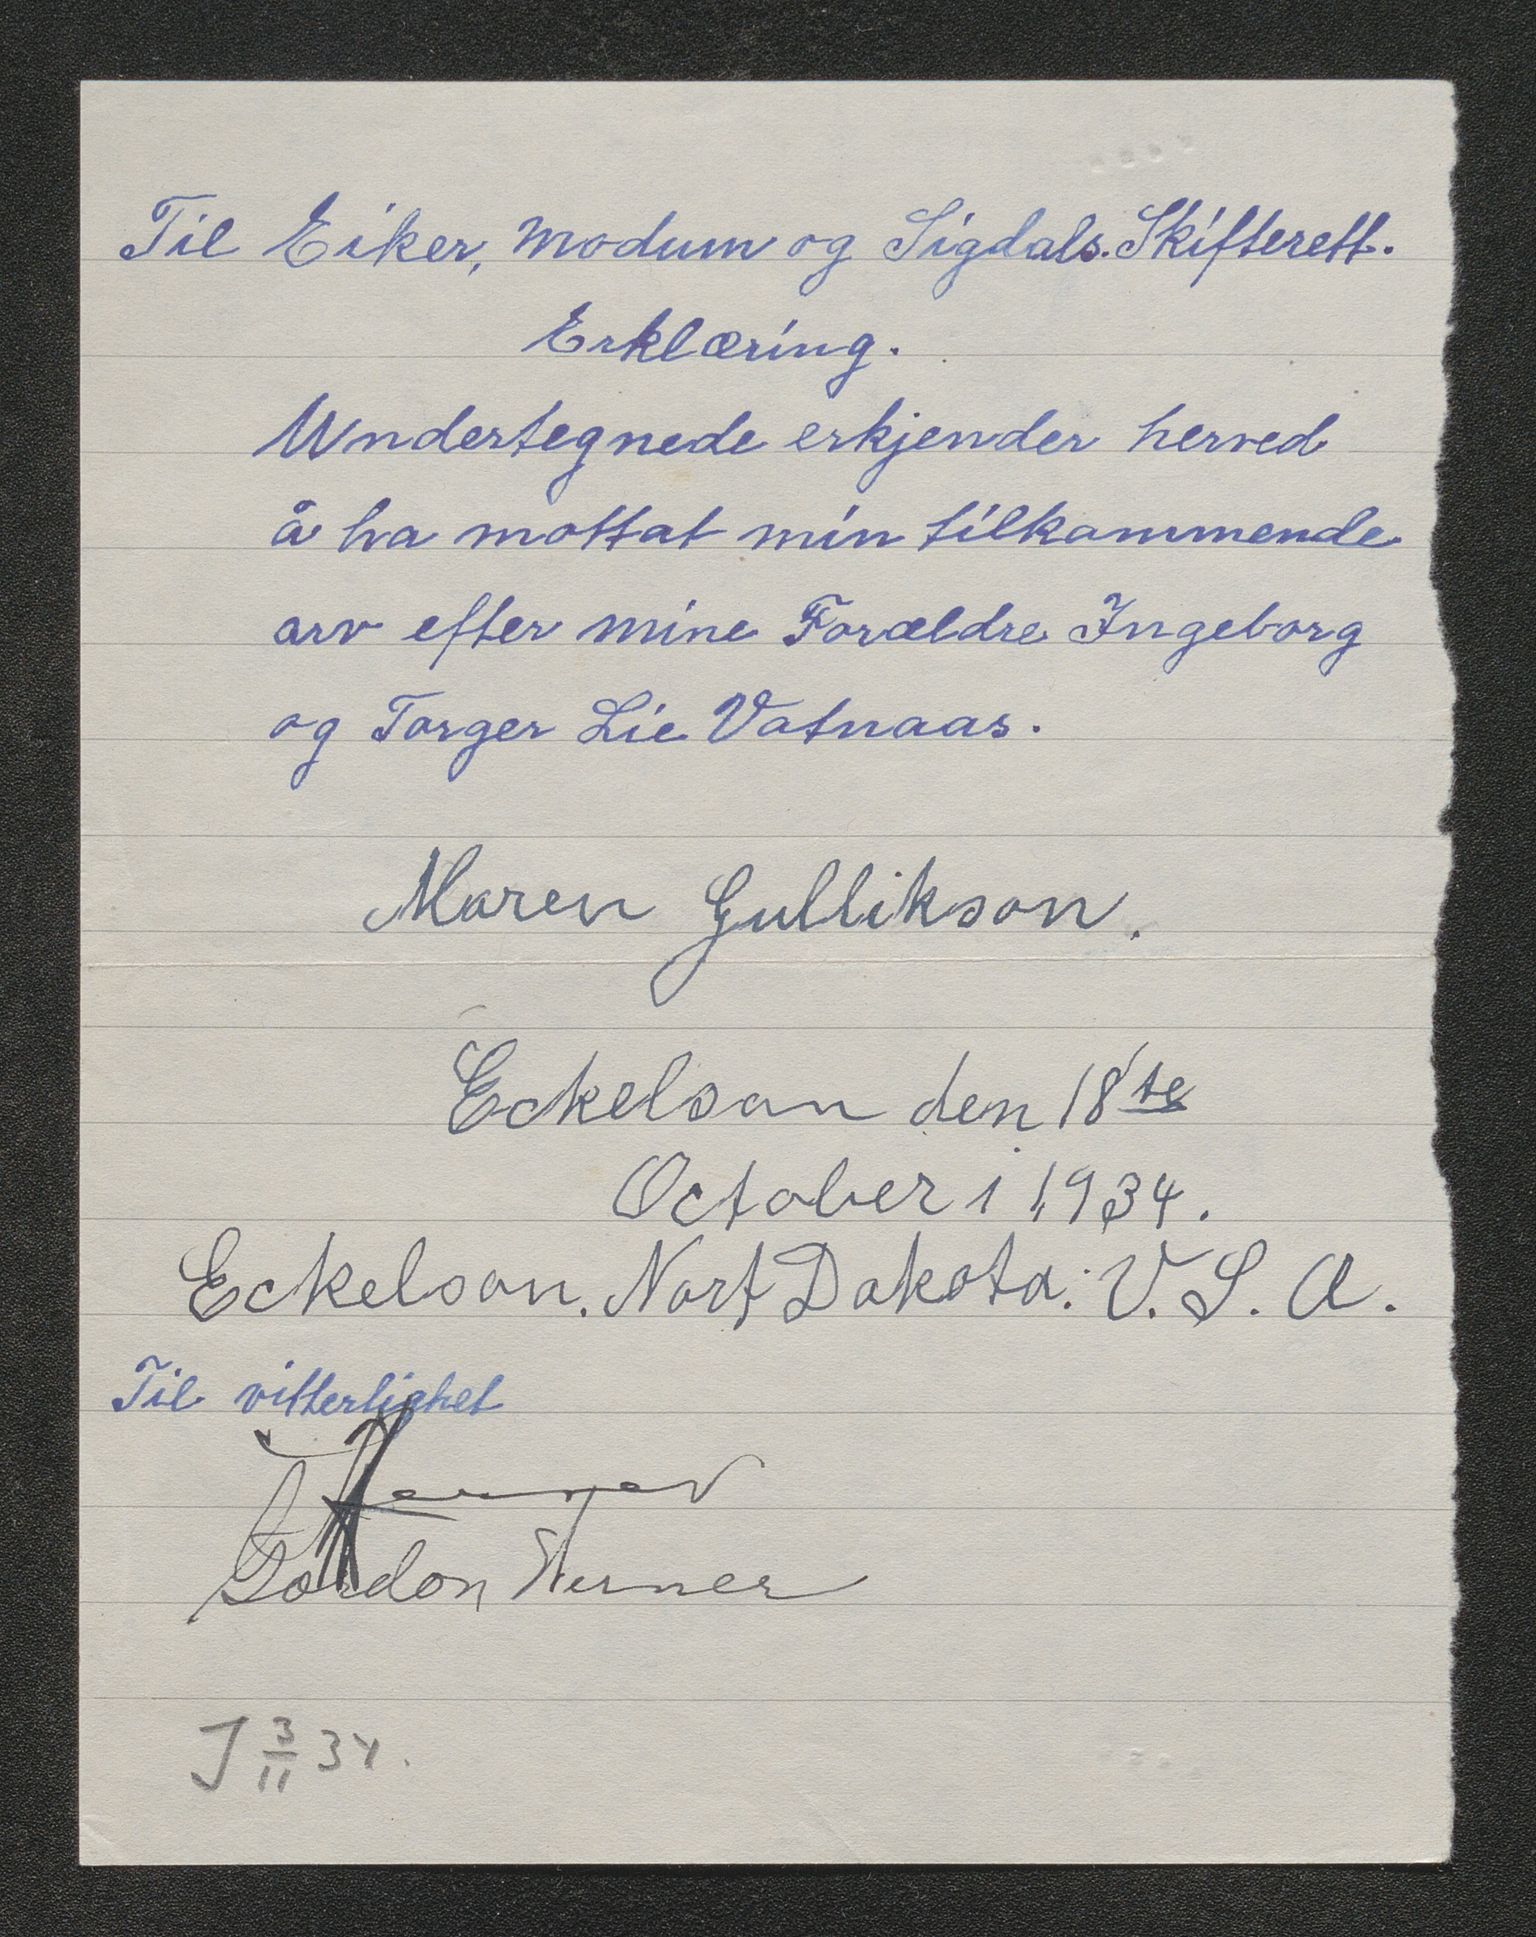 Til Eiker, Modum og Sigdals. Skifterett.
Erklæring.
Undertegnede erkjender herved
å ha mottat min tilkommende
arv efter mine Forældre Ingeborg
og Torger Lie Vatnaas.
Maren Gullikson.
Eckelson den 18te
October i 1934.
Eckelson. Nort Dakota. U. S. A.
Til vitterlighet
Gordon Werner
J 3/11 34.